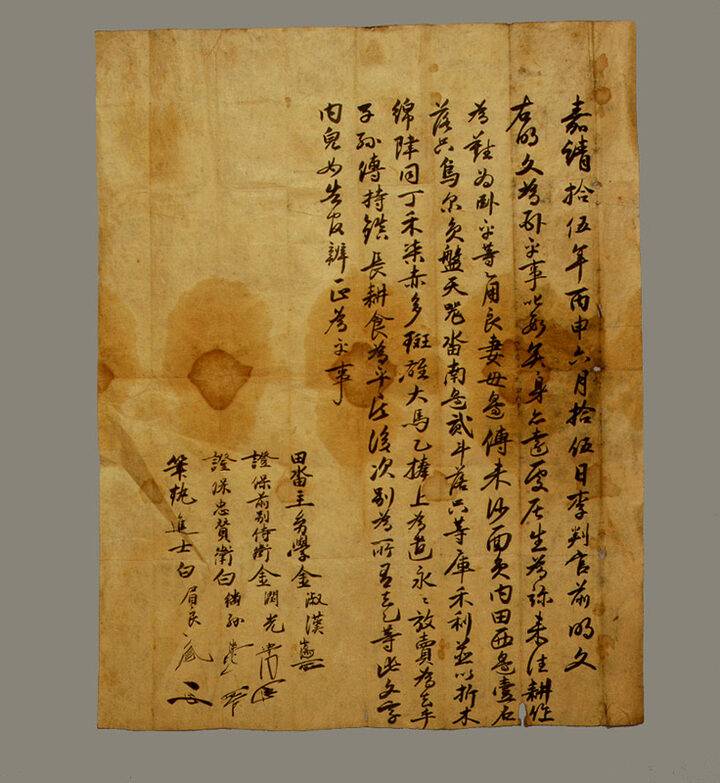 嘉靖拾伍年丙申六月拾伍日李判官前明文
右明文為卧乎事叱段矣身亦遠處居生為弥來往耕作
為難為卧乎等用良妻母邊傳來 面員內田西邊壹石
落只烏尔員盤天 畓南邊貳斗落只等庫禾利並以折木
綿陸同丁禾柒赤多斑雄大馬乙捧上為遣永〻放賣為去乎
子孫傳持鎭長耕食為乎 後次別為所有去乙等此文字
內皃如告官辨正為乎事
田畓主幼學金淑漢
證保前別侍衛金潤光
證保忠贊衛白 孫
筆執進士白眉良